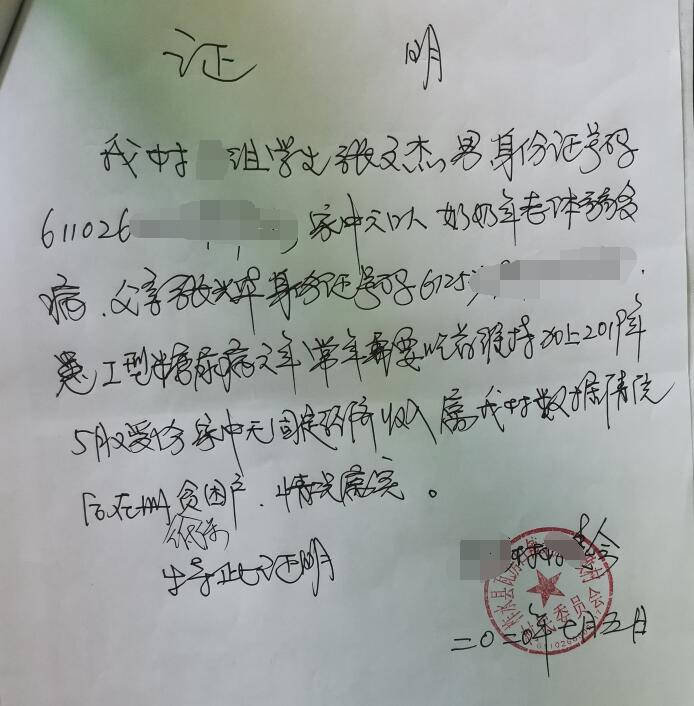 证 明
我村 组学生张文杰,男身份证号码
611026 家中 奶奶年老体弱多
病、父亲张 身份证号码6125
患 型糖尿病 年,常年需要吃药维持加上2019年
5月 受伤家中无固定经济收入属我村数据清洗
后在册贫困户、情况属实。
低保
特此证明
二〇二〇年七月五日